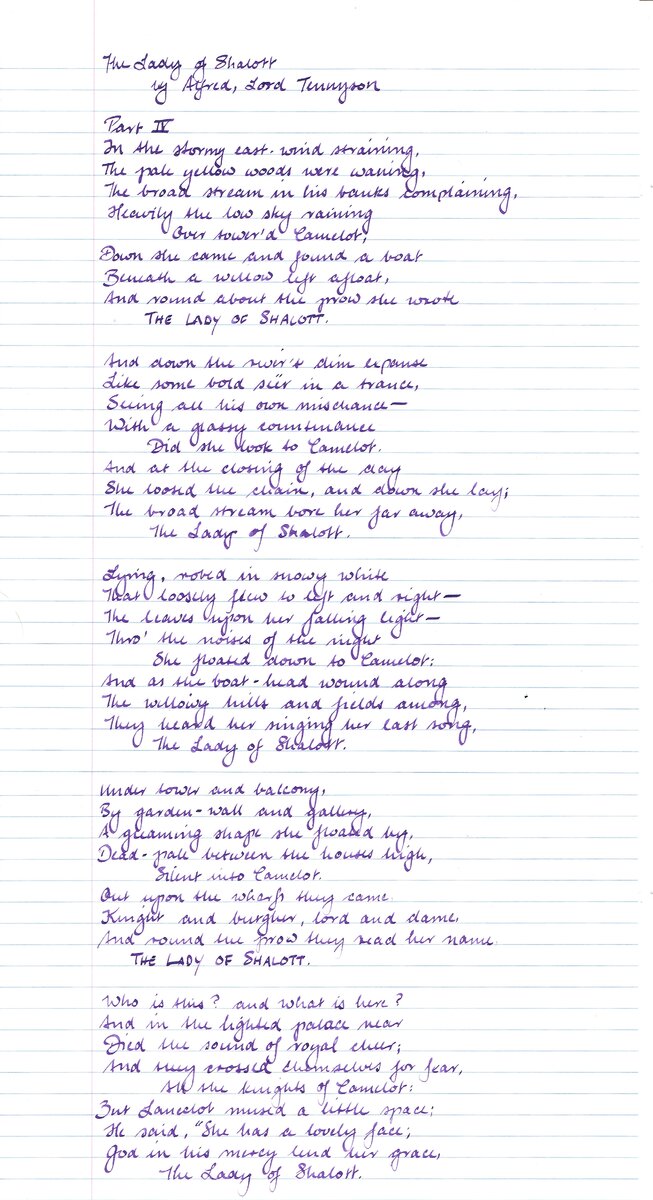 The Lady of Shalott
by Alfred, Lord Tennyson
Part IV
In the stormy east-wind straining,
The pale yellow woods were waning,
The broad stream in his banks complaining,
Heavily the low sky raining
Over tower'd Camelot;
Down she came and found a boat
Beneath a willow left afloat,
And round about the prow she wrote
THE LADY OF SHALOTT.
And down the river's dim expanse
Like some bold seër in a trance,
Seeing all his own mischance—
With a glassy countenance
Did she look to Camelot.
And at the closing of the day
She loosed the chain, and down she lay;
The broad stream bore her far away,
The Lady of Shalott.
Lying, robed in snowy white
That loosely flew to left and right—
The leaves upon her falling light—
Thro' the noises of the night
She floated down to Camelot:
And as the boat-head wound along
The willowy hills and fields among,
They heard her singing her last song,
The Lady of Shalott.
Under tower and balcony,
By garden-wall and gallery,
A gleaming shape she floated by,
Dead-pale between the houses high,
Silent into Camelot.
Out upon the wharfs they came
Knight and burgher, lord and dame,
And round the prow they read her name
THE LADY OF SHALOTT.
Who is this? and what is here?
And in the lighted palace near
Died the sound of royal cheer;
And they crossed themselves for fear,
All the knights of Camelot:
But Lancelot mused a little space;
He said, "She has a lovely face;
God in his mercy lend her grace,
The Lady of Shalott.